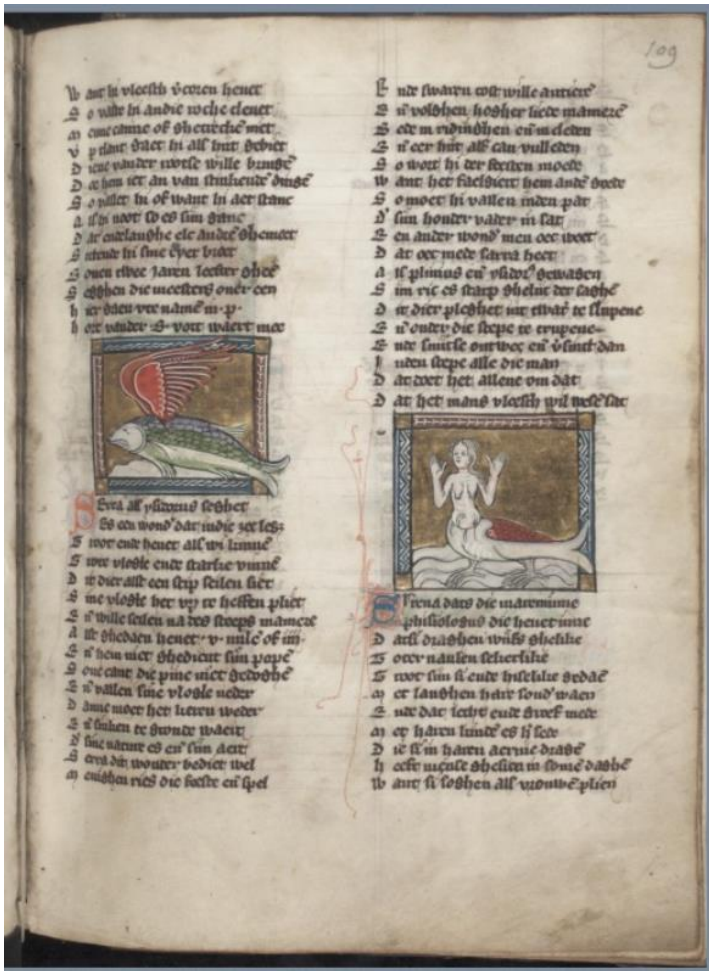 109
Want hi vleesch vercoren hevet
So vaste hi an die roche clevet
Up tlant gaet hi als hūt ghebiet
Diene vander rotse wille bringē
Doe hem iet an van stinkende dinghē
So vallet hi of want hi aet stanc
Als hi noot so es sijn ganc
Dat endelanghe elc andrē ghemoet
Sulende hi sine eyer broet
Boven twee jaren leefter ghee
Segghen die meesters over een
Hier gaen vte namē in .p.
Hort vander .S. vort waert mee
Serra als ysidorus seghet
Es een wond' dat in die zee leghet
Groot ende hevet als wi kinnē
Grote vlogle ende starke vinnē
Dit dier alst een scip seilen siet
Sine vlogle het up te heffen pliet
Eñ wille seilen na des sceeps maniere
Alst ghedaen hevet .v. mile of .iiii.
Eñ hem niet ghedient sijn pope
Sone cant die pine niet gedoghē
Eñ vallen sine vlogle neder
Danne moet het keren weder
Eñ sinken te gronde waert
D' sine nature es eñ sijn aert
Serra dit wonder bediet wel
Menighen ries die feeste eñ spel
Ende swaren cost wille antierē
Eñ volghen hogher liede manierē
Bede in ridinghen eñ in cleden
Eñ eer hijt als can vulleden
So wort hi der seerden moede
Want het faelgiert hem andē goede
So moet hi vallen in den pat
D' sijn houder vader in sat
Een ander wond' men oec weet
Dat oec mede sarra heet
Als plinius eñ ysidor' gewagen
Sijn ric es scarp ghelijc der saghē
Dit dier pleghet int wat' te slupene
Eñ onder die scepe te crupene
Ende snijtse ontwee eñ v'sinct dan
Inden scepe alle die man
Dat doet het allene om dat
Dat het mans vleesch wil wesē sat
Sirena dats die mareminne
Phisiologus die hevet inne
Datsi draghen wijfs ghelike
Toter navlen sekerlike
Groot sijn si ende eiselike gedaē
Met langhen hare sond' waen
Ende dat lecht ende groef mede
Met haren kinde es h' sede
Die si in haren aerme dragē
Heeft mense ghesien in somē daghē
Want si soghen als vrouwē plien